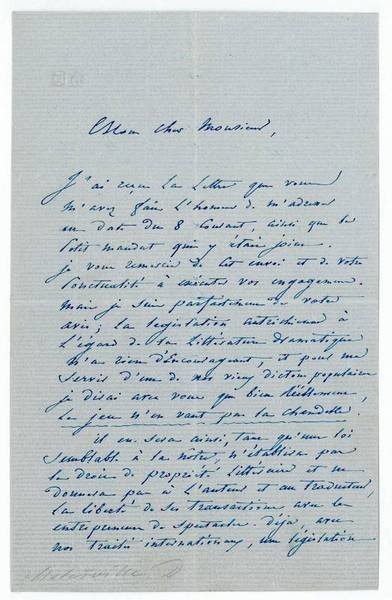 Mon cher Monsieur,
J'ai reçu la lettre que vous
m'avez fait l'honneur de m'adresser
en date du 8 courant ainsi que le
petit mandat qui y était joint.
je vous remercie de cet envoi et de votre
ponctualité à exécuter vos engagements.
Mais je suis parfaitement de votre
avis; la législation autrichienne à
l'égard de la littérature dramatique
n'a rien d'encourageant, et pour me
servir d'un de nos vieux dictons populaires
je dirai avec vous que bien réellement,
le jeu n'en vaut pas la chandelle.
il en sera ainsi, tant qu'une loi
semblable à la nôtre, n'établira pas
le droit de propriété littéraire et ne
donnera pas à l'auteur et au traducteur,
la liberté de ses transactions avec les
entrepreneurs de spectacles. Déjà, avec
nos traités internationaux, une législation